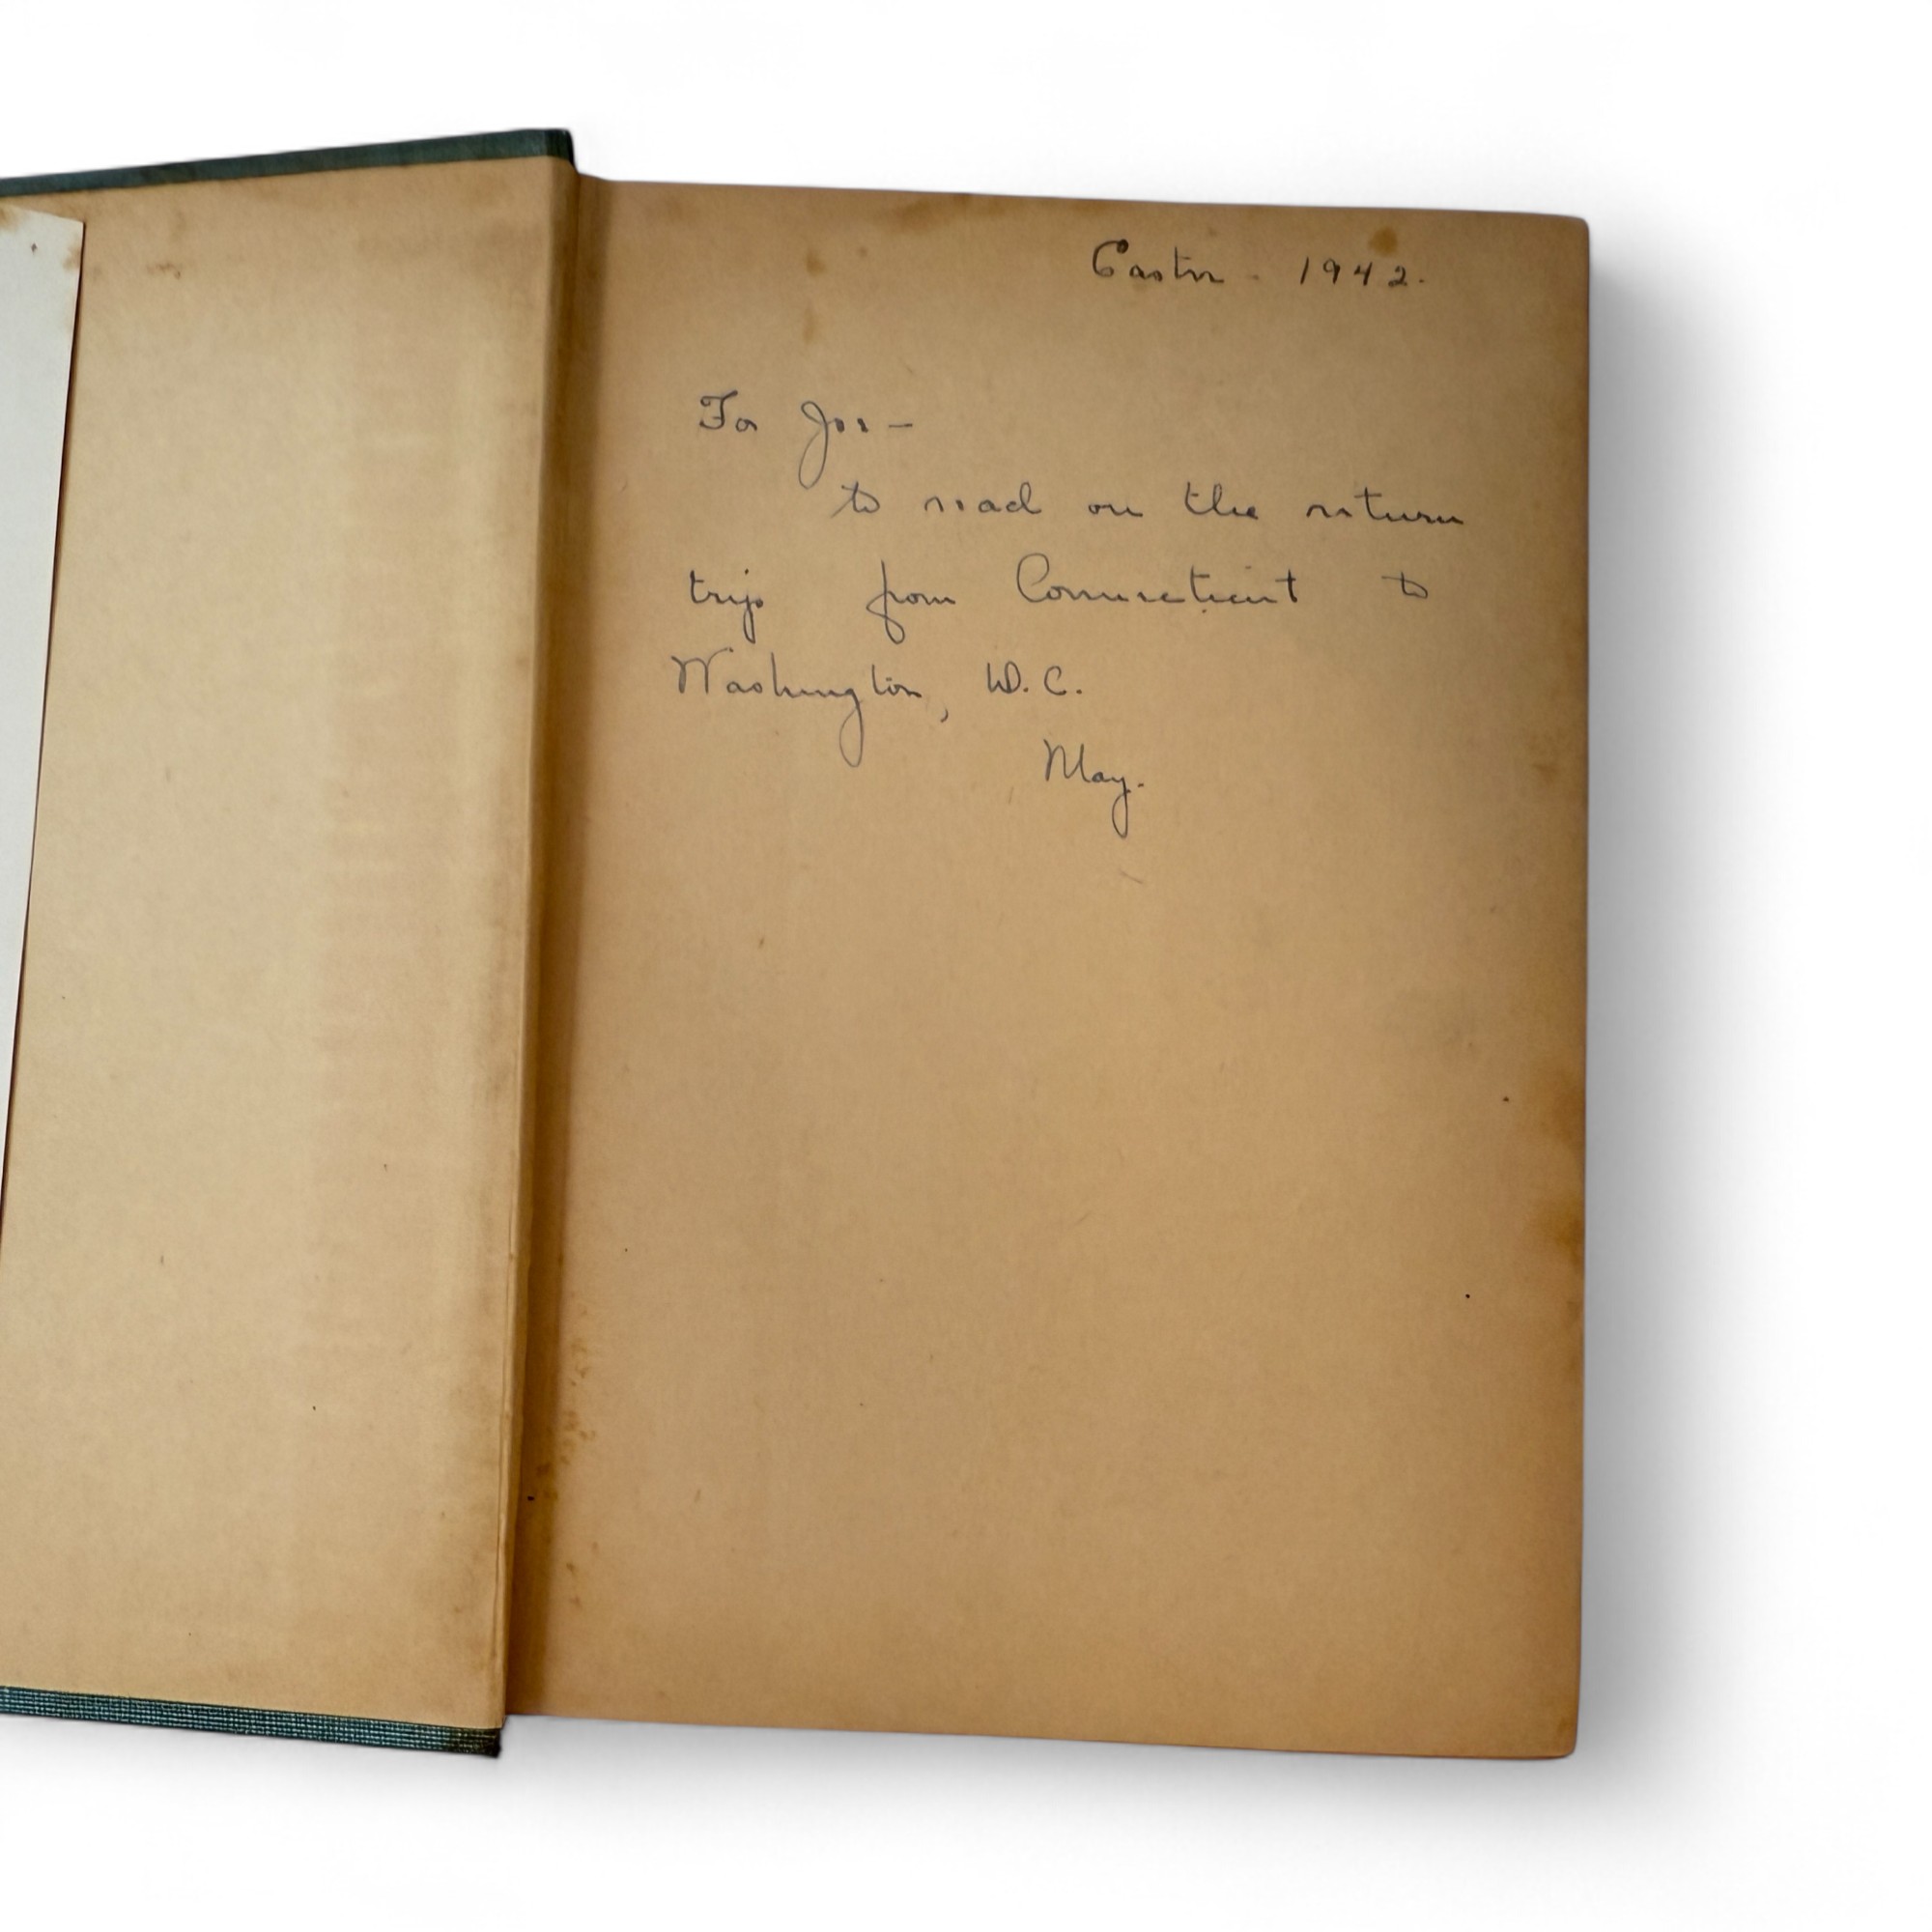 Easter - 1942.
For Joe -
to read on the return
trip from Connecticut to
Washington, D.C.
May.